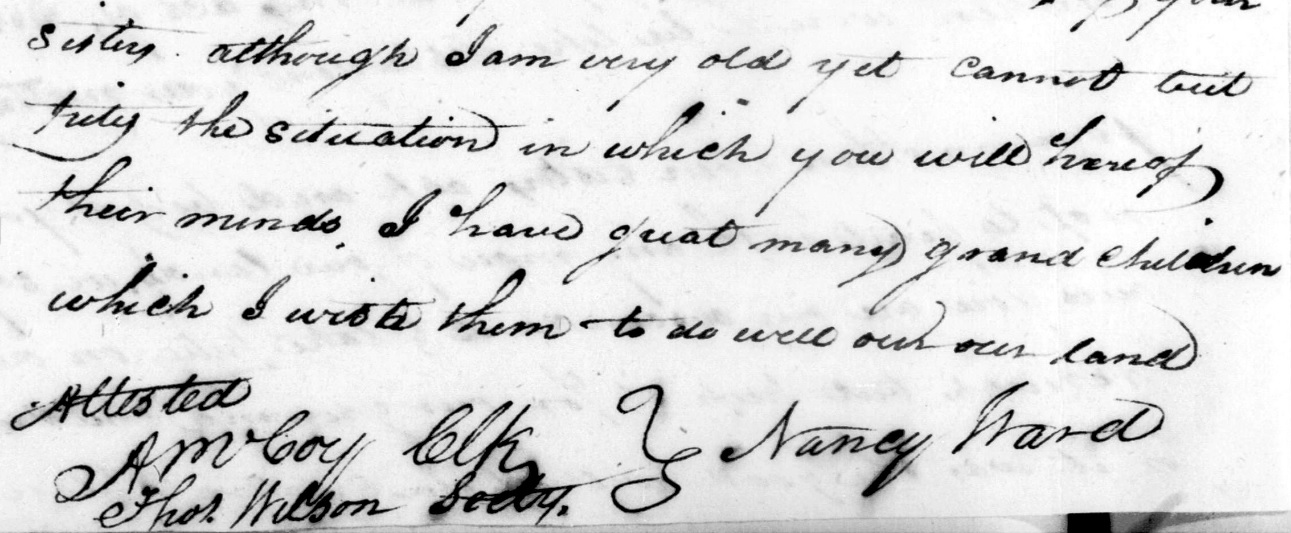 your
sister. although I am very old yet cannot but
pity the situation in which you will here of
their minds. I have great many grand children
which I wish them to do well our our land
Attested
A McCoy Clk
Thos. Wilson Secty. } Nancy Ward